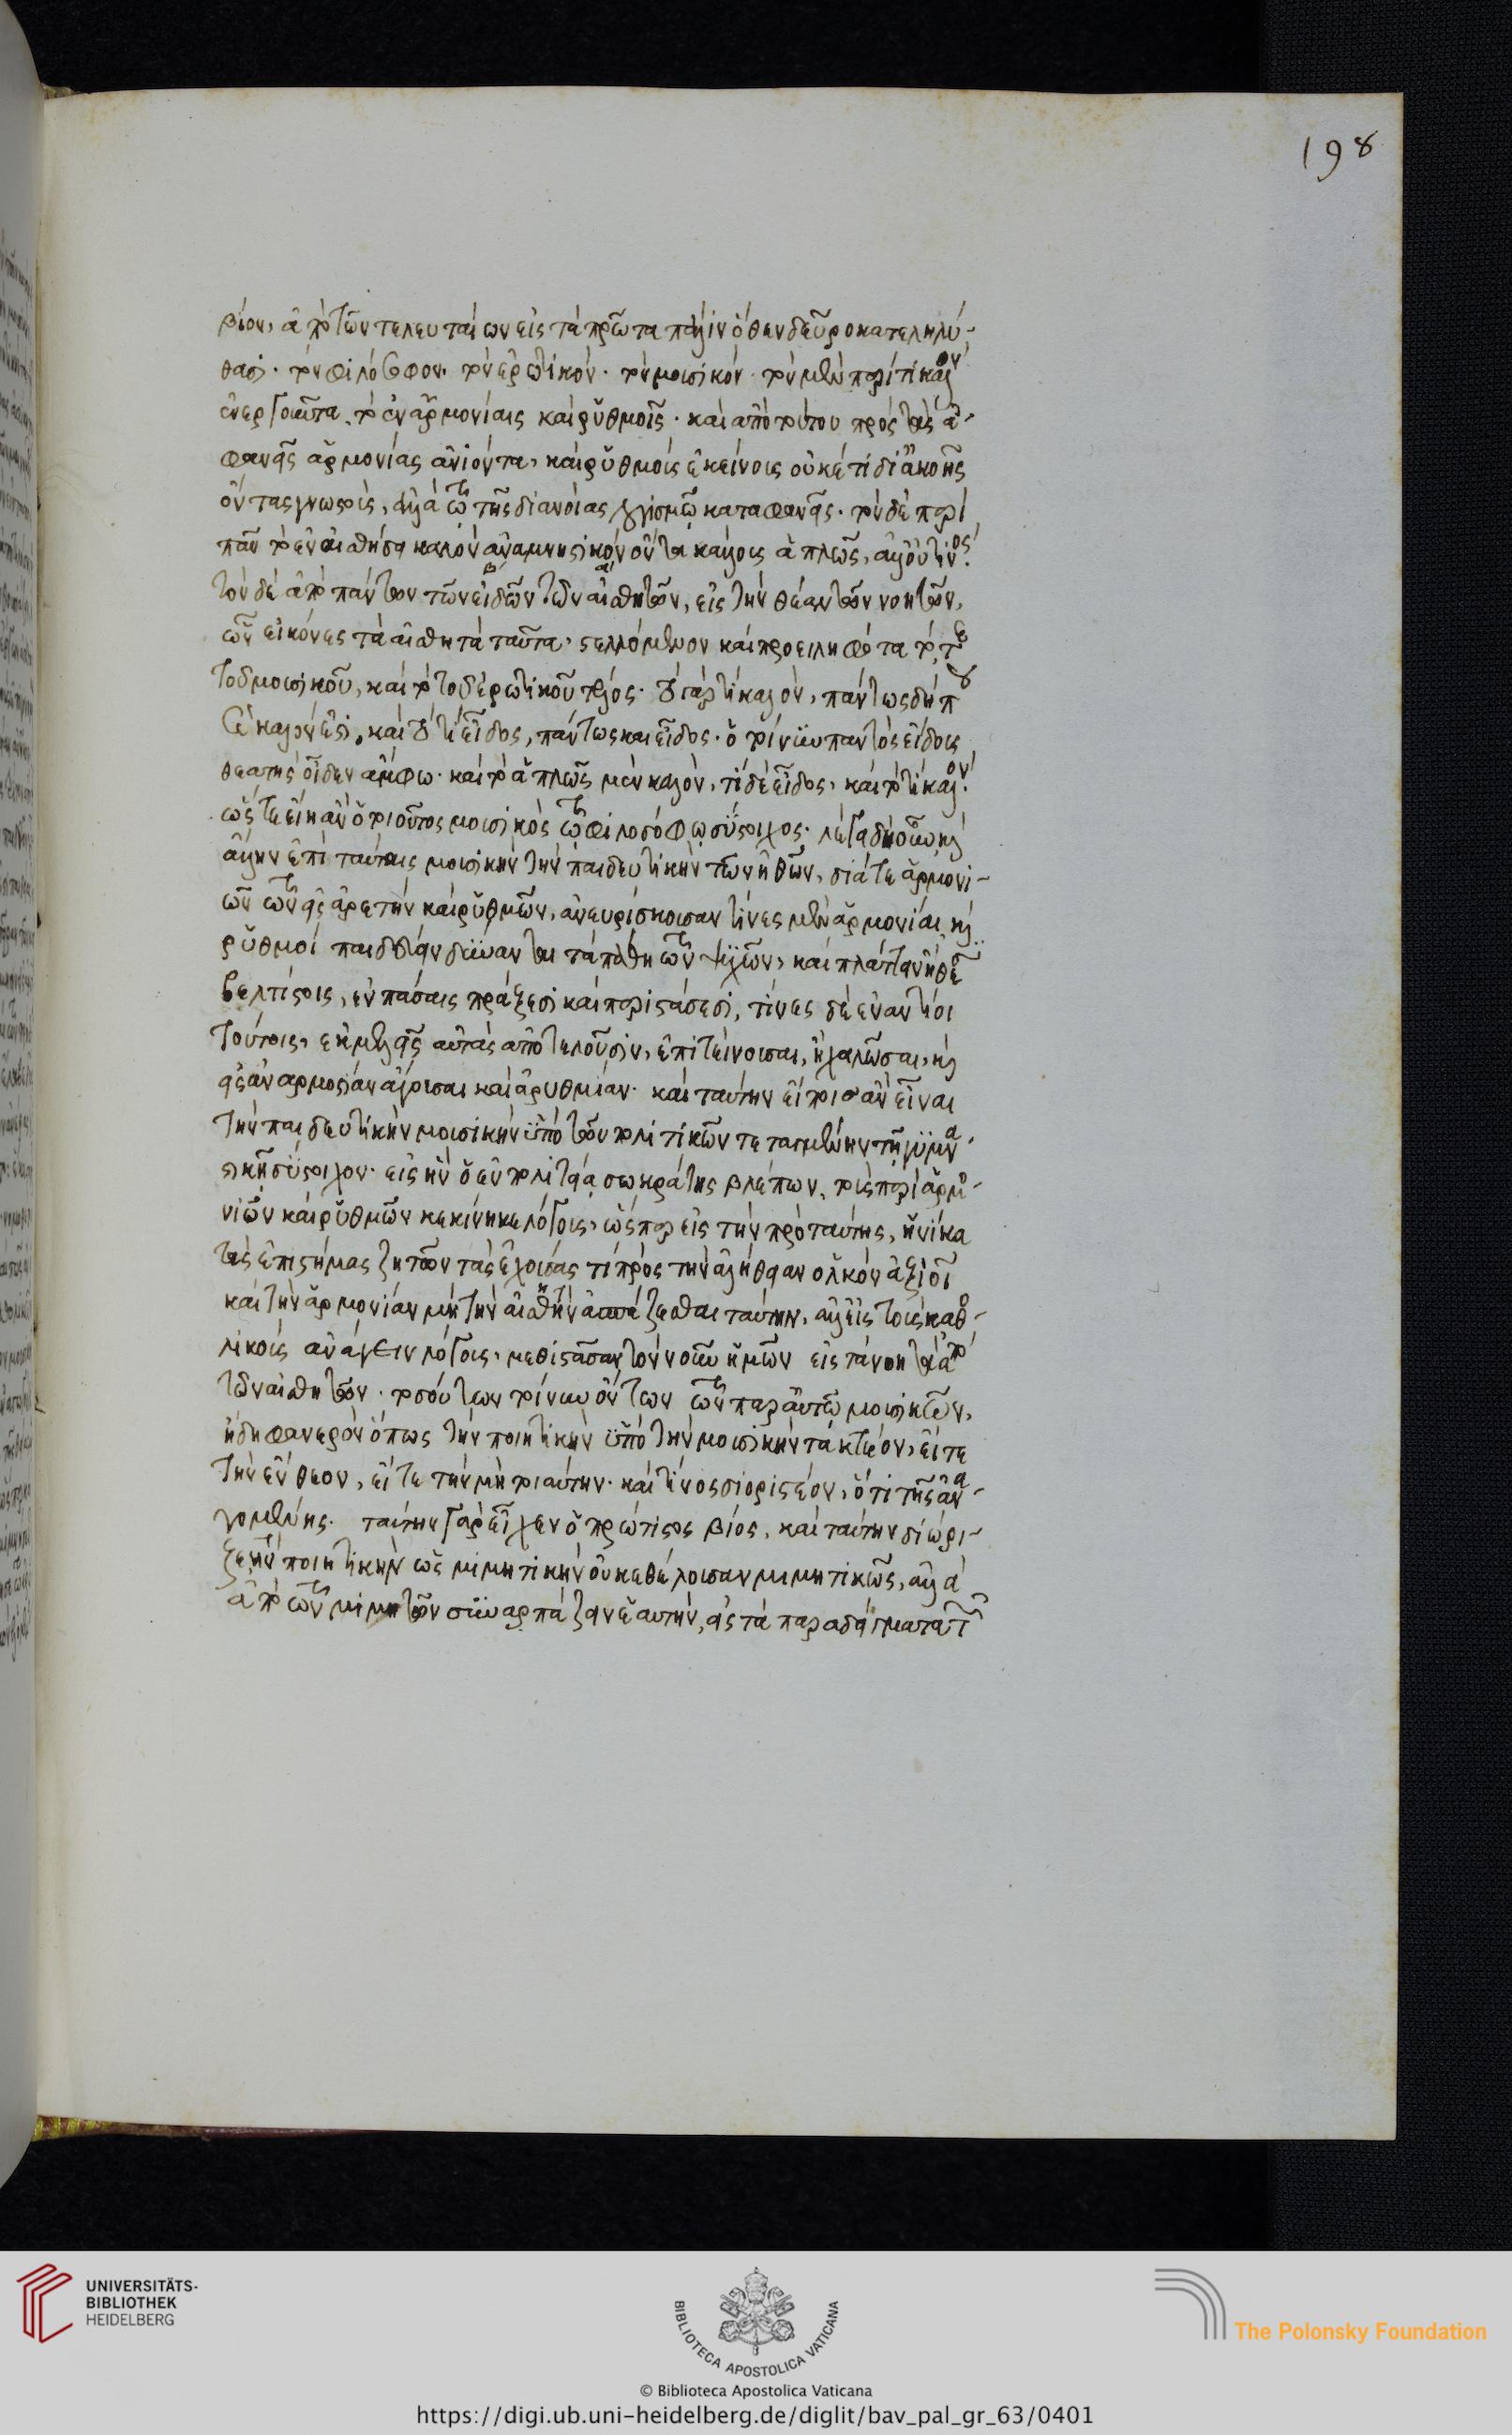 198
βίον, ἀπὸ τῶν τελευταίων εἰς τὰ πρῶτα πάλιν ὅθεν δεῦρο κατεληλύ-
θασι. τὸν φιλόσοφον. τὸν ἐρωτικόν. τὸν μουσικόν. τὸν μὲν περί τι καλὸν
ἐνεργοῦντα, τὸ ἐν ἁρμονίαις καὶ ῥυθμοῖς. καὶ ἀπὸ τούτου πρὸς τὰς ἀ-
φανεῖς ἁρμονίας ἀνιόντα, καὶ ῥυθμοὺς ἐκείνους οὐκέτι δι' ἀκοῆς
ὄντας γνωστοὺς, ἀλλὰ τῷ τῆς διανοίας λογισμῷ καταφανεῖς. τὸν δὲ περὶ
πᾶν τὸ ἐν αἰσθήσει καλὸν ἀναμνηστικὸν ὄντα κάλλους ἁπλῶς, ἀλλ' οὔ τινος.
τὸν δὲ ἀπὸ πάντων τῶν εἰδῶν τῶν αἰσθητῶν, εἰς τὴν θέαν τῶν νοητῶν,
ὧν εἰκόνες τὰ αἰσθητὰ ταῦτα, στελλόμενον καὶ προειληφότα τό τε
τοῦ μουσικοῦ, καὶ τὸ τοῦ ἐρωτικοῦ τέλος. οὗ γάρ τι καλὸν, πάντως δήπου
καὶ καλόν ἐστι, καὶ οὗ τι εἶδος, πάντως καὶ εἶδος. ὁ τοίνυν παντὸς εἴδους
θεατὴς οἶδεν ἄμφω. καὶ τὸ ἁπλῶς μὲν καλὸν, τὶ δὲ εἶδος, καὶ τό τι καλόν.
ὥστε εἴη ἂν ὁ τοιοῦτος μουσικὸς τῷ φιλοσόφῳ σύστοιχος. λέγει δὴ οὖν καὶ
ἄλλην ἐπὶ ταύταις μουσικὴν τὴν παιδευτικὴν τῶν ἠθῶν, διά τε ἁρμονι-
ῶν τῶν εἰς ἀρετὴν καὶ ῥυθμῶν, ἀνευρίσκουσαν τίνες μὲν ἁρμονίαι καὶ
ῥυθμοὶ παιδεύειν δύνανται τὰ πάθη τῶν ψυχῶν, καὶ πλάττειν ἤθεσι
βελτίστοις, ἐν πάσαις πράξεσι καὶ περιστάσεσι, τίνες δὲ ἐναντίοι
τούτοις, ἐκμελεῖς αὐτὰς ἀποτελοῦσιν, ἐπιτείνουσαι, ἢ χαλῶσαι, καὶ
εἰς ἀναρμοστίαν ἄγουσαι καὶ ἀρυθμίαν. καὶ ταύτην εἴποις ἂν εἶναι
τὴν παιδευτικὴν μουσικὴν ὑπὸ τῶν πολιτικῶν τεταγμένην τῇ γυμνα-
στικῇ σύστοιχον. εἰς ἣν ὁ ἐν πολιτείᾳ σωκράτης βλέπων, τοὺς περὶ ἁρμο-
νιῶν καὶ ῥυθμῶν κεκίνηκε λόγους, ὥσπερ εἰς τὴν πρὸ ταύτης, ἡνίκα
τὰς ἐπιστήμας ζητῶν τὰς ἐχούσας τι πρὸς τὴν ἀλήθειαν ὁλκὸν ἀξιοῖ
καὶ τὴν ἁρμονίαν μὴ τὴν αἰσθητὴν ἀσπάζεσθαι ταύτην, ἀλλ' εἰς τοὺς καθο-
λικοὺς ἀνάγειν λόγους, μεθιστᾶσαν τὸν νοῦν ἡμῶν εἰς τὰ νοητὰ ἀπὸ
τῶν αἰσθητῶν. τοσούτων τοίνυν ὄντων τῶν παρ' αὐτῷ μουσικῶν,
ἤδη φανερὸν ὅπως τὴν ποιητικὴν ὑπὸ τὴν μουσικὴν τακτέον, εἴτε
τὴν ἔνθεον, εἴτε τὴν μὴ τοιαύτην. καὶ τίνος διοριστέον, ὅτι τῆς ἀνα-
γομένης. ταύτην γὰρ εἶχεν ὁ πρώτιστος βίος, καὶ ταύτην διώρι-
ζε τὴν ποιητικὴν ὡς μιμητικὴν οὐκ ἐθέλουσαν μιμητικῶς, ἀλλὰ
ἀπὸ τῶν μιμητῶν συναρπάζειν ἑαυτὴν, εἰς τὰ παραδείγματα τῶν
UNIVERSITÄTS-
BIBLIOTHEK
HEIDELBERG
BIBLIOTECA APOSTOLICA VATICANA
The Polonsky Foundation
© Biblioteca Apostolica Vaticana
https://digi.ub.uni-heidelberg.de/diglit/bav_pal_gr_63/0401